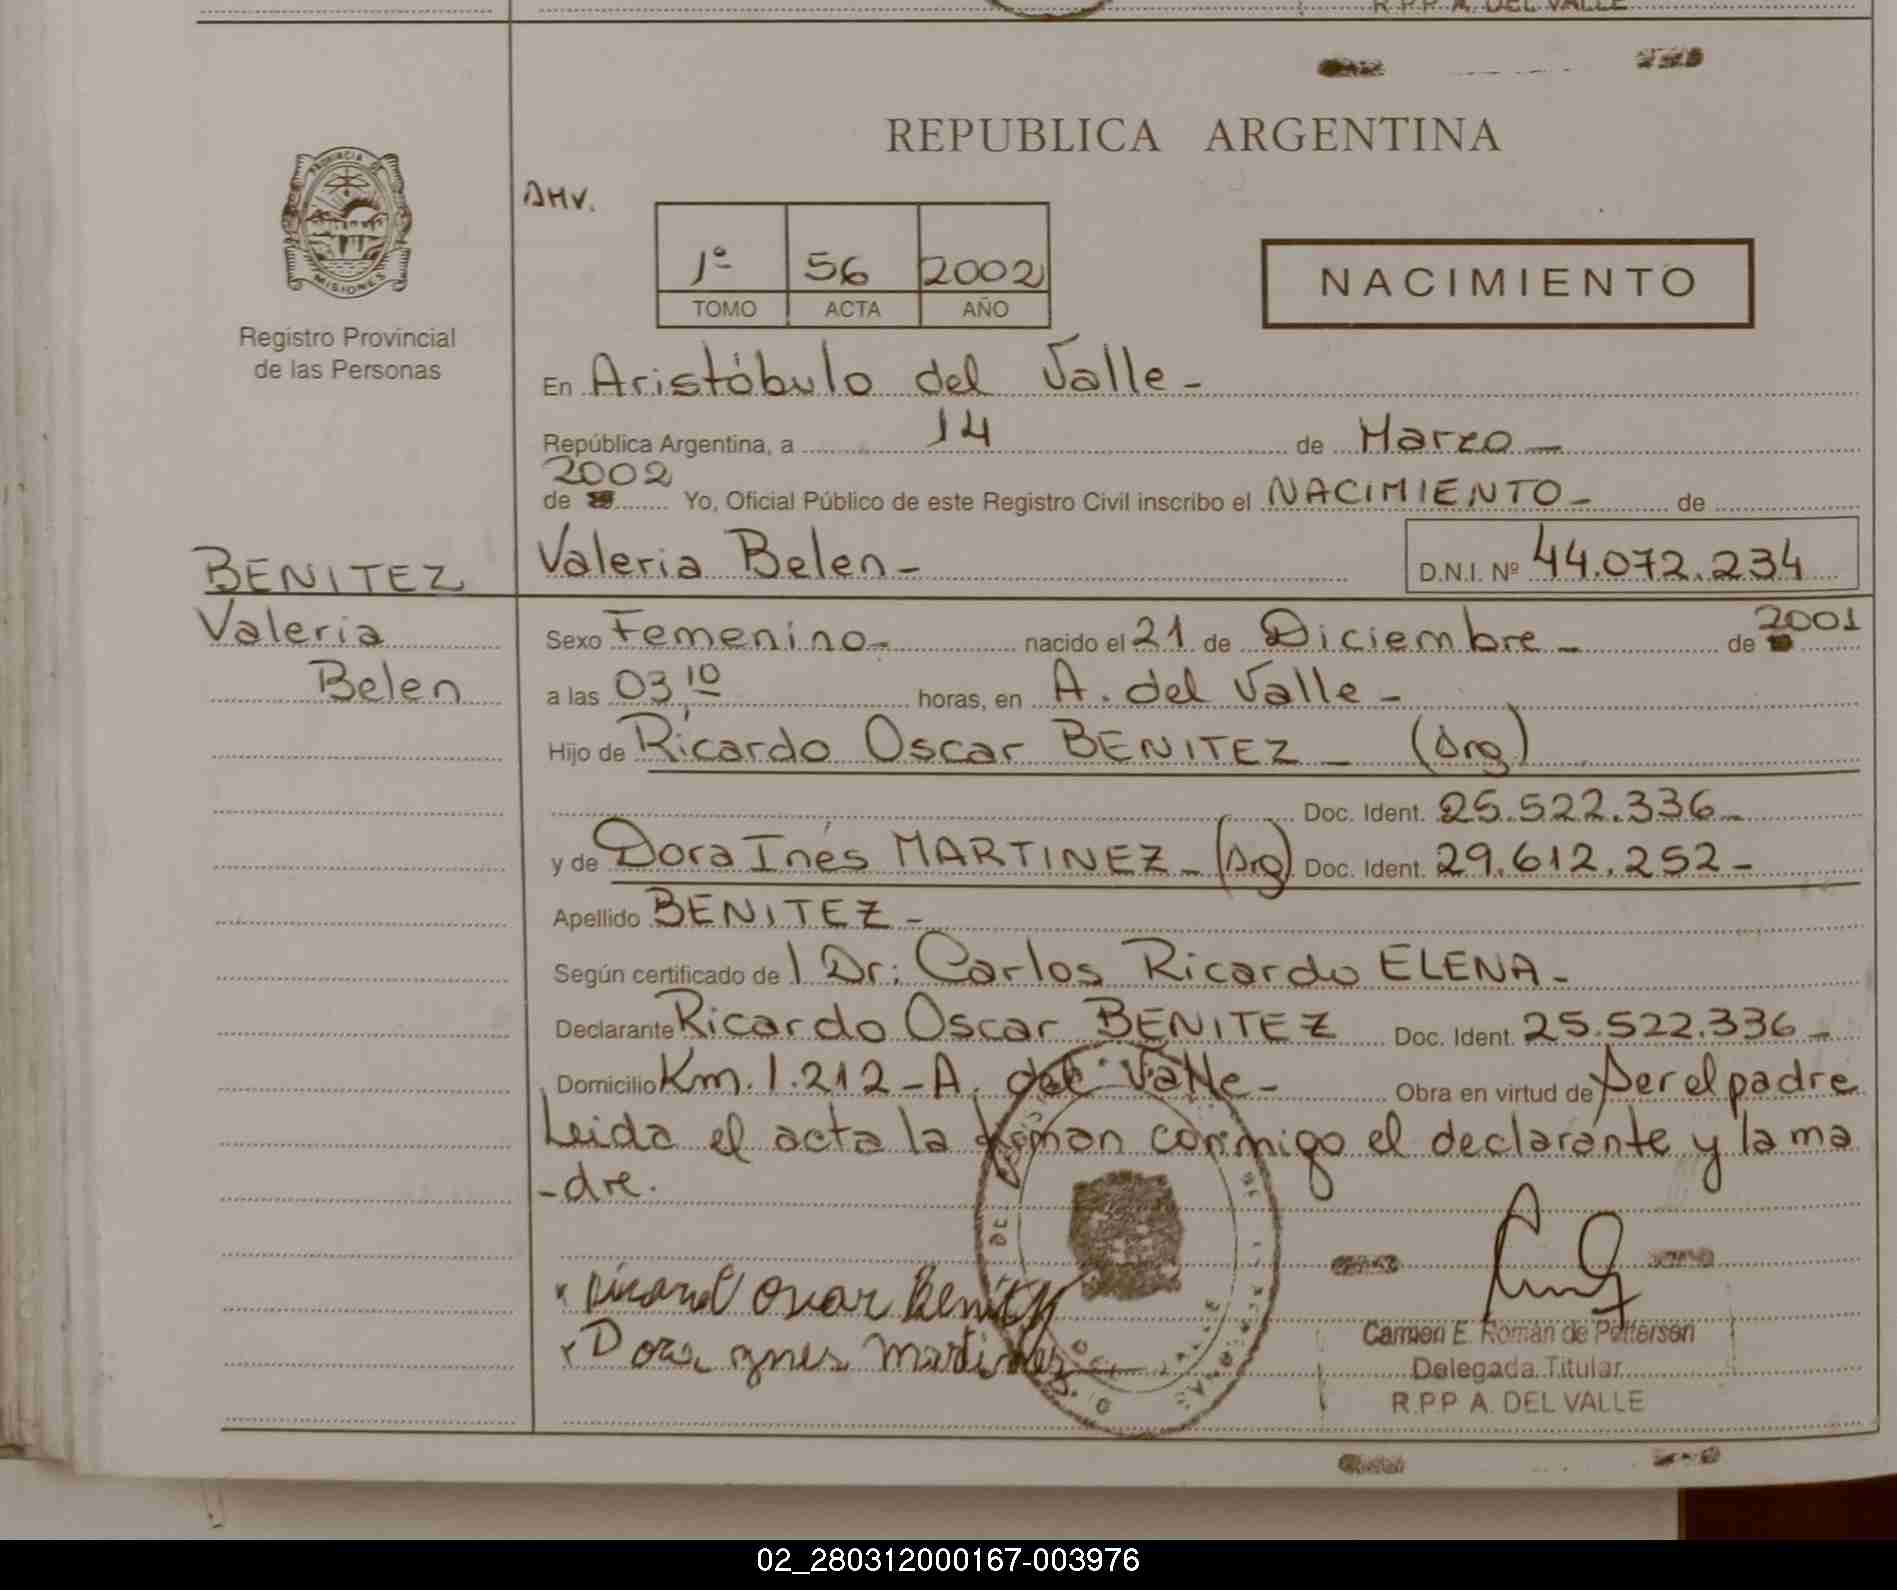 R.P.P. A. DEL VALLE
REPUBLICA ARGENTINA
PROVINCIA DE
MISIONES
Registro Provincial
de las Personas
AHV.
1º 56 2002
TOMO ACTA AÑO
NACIMIENTO
En Aristóbulo del Valle -
República Argentina, a 14 de Marzo -
2002
de Yo, Oficial Público de este Registro Civil inscribo el NACIMIENTO - de
BENITEZ Valeria Belen - D.N.I. Nº 44.072.234
Valeria
Belen
Sexo Femenino - nacido el 21 de Diciembre - de 2001
a las 03 10 horas, en A. del Valle -
Hijo de Ricardo Oscar BENITEZ - (Arg)
Doc. Ident. 25.522.336 -
y de Dora Inés MARTINEZ - (Arg) Doc. Ident. 29.612.252 -
Apellido BENITEZ -
Según certificado de / Dr: Carlos Ricardo ELENA -
Declarante Ricardo Oscar BENITEZ Doc. Ident. 25.522.336 -
Domicilio Km. 1.212 - A. del Valle - Obra en virtud de ser el padre
Leida el acta la firman conmigo el declarante y la ma
- dre.
Ricard Oscar Benitez
Dora ynes Martinez
Carmen E. Román de Pettersen
Delegada Titular
R.P.P A. DEL VALLE
02_280312000167-003976